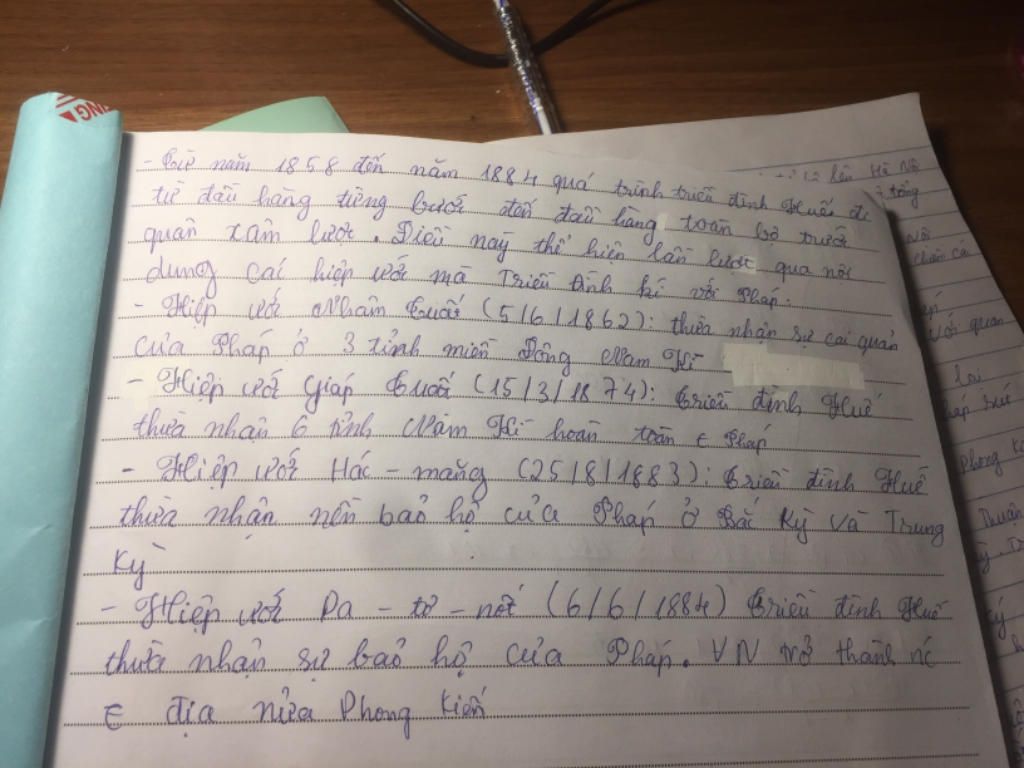 - Từ năm 1858 đến năm 1884 quá trình triều đình Huế đi
từ đầu hàng từng bước đến đầu hàng toàn bộ trước
quân xâm lược. Điều này thể hiện lần lượt qua nội
dung các hiệp ước mà Triều đình kí với Pháp.
- Hiệp ước Nhâm Tuất (5/6/1862): thừa nhận sự cai quản
của Pháp ở 3 tỉnh miền Đông Nam Kì
- Hiệp ước Giáp Tuất (15/3/1874): Triều đình Huế
thừa nhận 6 tỉnh Nam Kì hoàn toàn € Pháp
- Hiệp ước Hác - măng (25/8/1883): Triều đình Huế
thừa nhận nền bảo hộ của Pháp ở Bắc Kỳ và Trung
Kỳ
- Hiệp ước Pa - tơ - nốt (6/6/1884) Triều đình Huế
thừa nhận sự bảo hộ của Pháp. VN trở thành nc
€ địa nửa Phong Kiến
lên Hà Nội
tổng
Nội
với quan
lại
Phong
Thuận